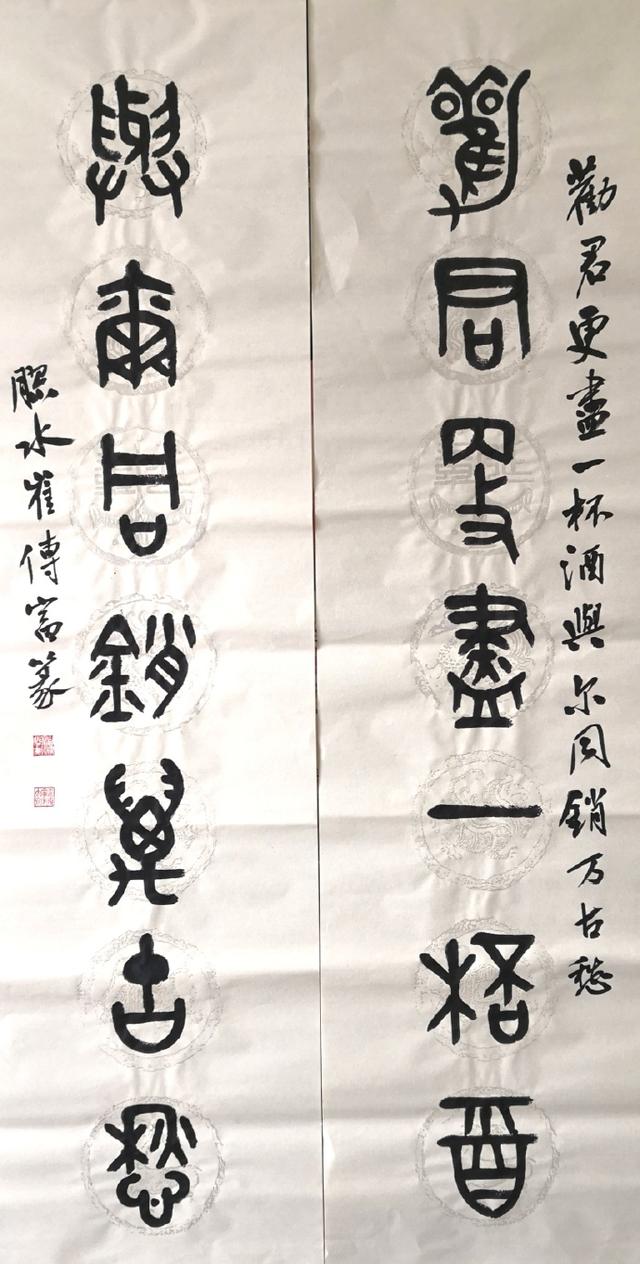 勸君更盡一杯酒與尔同銷万古愁
勸君更盡一桮酉
與爾同銷萬古愁
膠水崔傳富篆